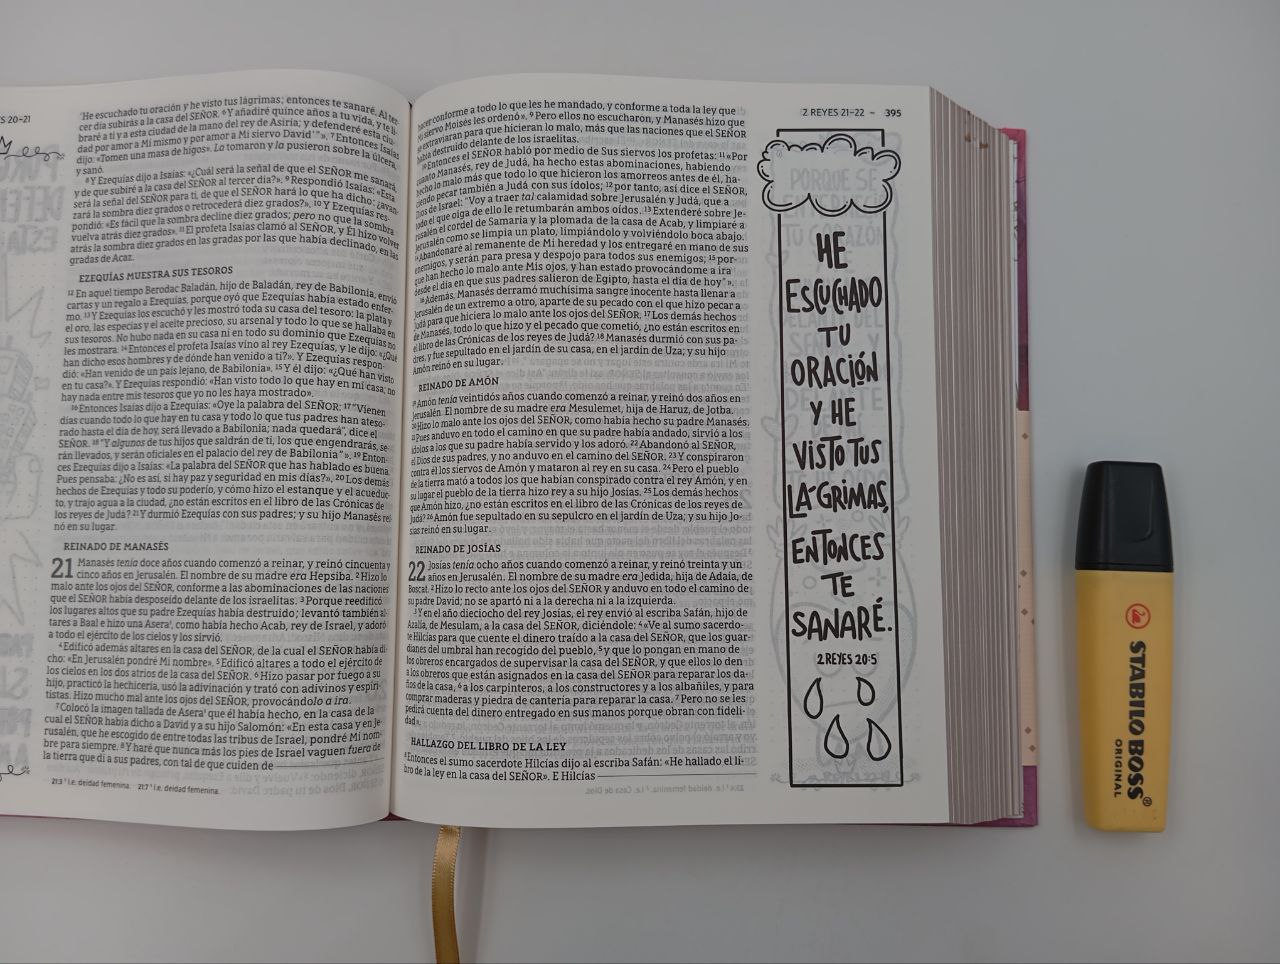 S 20–21
"He escuchado tu oración y he visto tus lágrimas; entonces te sanaré. Al ter-
cer día subirás a la casa del SEÑOR. 6 Y añadiré quince años a tu vida, y te li-
braré a ti y a esta ciudad de la mano del rey de Asiria; y defenderé esta ciu-
dad por amor a Mí mismo y por amor a Mi siervo David"'». 7 Entonces Isaías
dijo: «Tomen una masa de higos». La tomaron y la pusieron sobre la úlcera,
y sanó.
8 Y Ezequías dijo a Isaías: «¿Cuál será la señal de que el SEÑOR me sanará,
y de que subiré a la casa del SEÑOR al tercer día?». 9 Respondió Isaías: «Esta
será la señal del SEÑOR para ti, de que el SEÑOR hará lo que ha dicho: ¿avan-
zará la sombra diez grados o retrocederá diez grados?». 10 Y Ezequías res-
pondió: «Es fácil que la sombra decline diez grados; pero no que la sombra
vuelva atrás diez grados». 11 El profeta Isaías clamó al SEÑOR, y Él hizo volver
atrás la sombra diez grados en las gradas por las que había declinado, en las
gradas de Acaz.
EZEQUÍAS MUESTRA SUS TESOROS
12 En aquel tiempo Berodac Baladán, hijo de Baladán, rey de Babilonia, envió
cartas y un regalo a Ezequías, porque oyó que Ezequías había estado enfer-
mo. 13 Y Ezequías los escuchó y les mostró toda su casa del tesoro: la plata y
el oro, las especias y el aceite precioso, su arsenal y todo lo que se hallaba en
sus tesoros. No hubo nada en su casa ni en todo su dominio que Ezequías no
les mostrara. 14 Entonces el profeta Isaías vino al rey Ezequías, y le dijo: «¿Qué
han dicho esos hombres y de dónde han venido a ti?». Y Ezequías respon-
dió: «Han venido de un país lejano, de Babilonia». 15 Y él dijo: «¿Qué han visto
en tu casa?». Y Ezequías respondió: «Han visto todo lo que hay en mi casa; no
hay nada entre mis tesoros que yo no les haya mostrado».
16 Entonces Isaías dijo a Ezequías: «Oye la palabra del SEÑOR: 17 "Vienen
días cuando todo lo que hay en tu casa y todo lo que tus padres han ateso-
rado hasta el día de hoy, será llevado a Babilonia; nada quedará", dice el
SEÑOR. 18 "Y algunos de tus hijos que saldrán de ti, los que engendrarás, se-
rán llevados, y serán oficiales en el palacio del rey de Babilonia"». 19 Enton-
ces Ezequías dijo a Isaías: «La palabra del SEÑOR que has hablado es buena».
Pues pensaba: ¿No es así, si hay paz y seguridad en mis días?». 20 Los demás
hechos de Ezequías y todo su poderío, y cómo hizo el estanque y el acueduc-
to, y trajo agua a la ciudad, ¿no están escritos en el libro de las Crónicas de
los reyes de Judá? 21 Y durmió Ezequías con sus padres; y su hijo Manasés rei-
nó en su lugar.
REINADO DE MANASÉS
21 Manasés tenía doce años cuando comenzó a reinar, y reinó cincuenta y
cinco años en Jerusalén. El nombre de su madre era Hepsiba. 2 Hizo lo
malo ante los ojos del SEÑOR, conforme a las abominaciones de las naciones
que el SEÑOR había desposeído delante de los israelitas. 3 Porque reedificó
los lugares altos que su padre Ezequías había destruido; levantó también al-
tares a Baal e hizo una Asera¹, como había hecho Acab, rey de Israel, y adoró
a todo el ejército de los cielos y los sirvió.
4 Edificó además altares en la casa del SEÑOR, de la cual el SEÑOR había di-
cho: «En Jerusalén pondré Mi nombre». 5 Edificó altares a todo el ejército de
los cielos en los dos atrios de la casa del SEÑOR. 6 Hizo pasar por fuego a su
hijo, practicó la hechicería, usó la adivinación y trató con adivinos y espiri-
tistas. Hizo mucho mal ante los ojos del SEÑOR, provocándolo a ira.
7 Colocó la imagen tallada de Asera¹ que él había hecho, en la casa de la
cual el SEÑOR había dicho a David y a su hijo Salomón: «En esta casa y en Je-
rusalén, que he escogido de entre todas las tribus de Israel, pondré Mi nom-
bre para siempre. 8 Y haré que nunca más los pies de Israel vaguen fuera de
la tierra que di a sus padres, con tal de que cuiden de
21:3 ¹ I.e. deidad femenina. 21:7 ¹ I.e. deidad femenina.
2 REYES 21–22 – 395
hacer conforme a todo lo que les he mandado, y conforme a toda la ley que
Mi siervo Moisés les ordenó». 9 Pero ellos no escucharon, y Manasés hizo que
se extraviaran para que hicieran lo malo, más que las naciones que el SEÑOR
había destruido delante de los israelitas.
10 Entonces el SEÑOR habló por medio de Sus siervos los profetas: 11 «Por
cuanto Manasés, rey de Judá, ha hecho estas abominaciones, habiendo
hecho lo malo más que todo lo que hicieron los amorreos antes de él, ha-
ciendo pecar también a Judá con sus ídolos; 12 por tanto, así dice el SEÑOR,
Dios de Israel: "Voy a traer tal calamidad sobre Jerusalén y Judá, que a
todo el que oiga de ello le retumbarán ambos oídos. 13 Extenderé sobre Je-
rusalén el cordel de Samaria y la plomada de la casa de Acab, y limpiaré a
Jerusalén como se limpia un plato, limpiándolo y volviéndolo boca abajo.
14 Abandonaré al remanente de Mi heredad y los entregaré en mano de sus
enemigos, y serán para presa y despojo para todos sus enemigos; 15 por-
que han hecho lo malo ante Mis ojos, y han estado provocándome a ira
desde el día en que sus padres salieron de Egipto, hasta el día de hoy"».
16 Además, Manasés derramó muchísima sangre inocente hasta llenar a
Jerusalén de un extremo a otro, aparte de su pecado con el que hizo pecar a
Judá para que hiciera lo malo ante los ojos del SEÑOR. 17 Los demás hechos
de Manasés, todo lo que hizo y el pecado que cometió, ¿no están escritos en
el libro de las Crónicas de los reyes de Judá? 18 Manasés durmió con sus pa-
dres, y fue sepultado en el jardín de su casa, en el jardín de Uza; y su hijo
Amón reinó en su lugar.
REINADO DE AMÓN
19 Amón tenía veintidós años cuando comenzó a reinar, y reinó dos años en
Jerusalén. El nombre de su madre era Mesulemet, hija de Haruz, de Jotba.
20 Hizo lo malo ante los ojos del SEÑOR, como había hecho su padre Manasés.
21 Pues anduvo en todo el camino en que su padre había andado, sirvió a los
ídolos a los que su padre había servido y los adoró. 22 Abandonó al SEÑOR,
el Dios de sus padres, y no anduvo en el camino del SEÑOR. 23 Y conspiraron
contra él los siervos de Amón y mataron al rey en su casa. 24 Pero el pueblo
de la tierra mató a todos los que habían conspirado contra el rey Amón, y en
su lugar el pueblo de la tierra hizo rey a su hijo Josías. 25 Los demás hechos
que Amón hizo, ¿no están escritos en el libro de las Crónicas de los reyes de
Judá? 26 Amón fue sepultado en su sepulcro en el jardín de Uza; y su hijo Jo-
sías reinó en su lugar.
REINADO DE JOSÍAS
22 Josías tenía ocho años cuando comenzó a reinar, y reinó treinta y un
años en Jerusalén. El nombre de su madre era Jedida, hija de Adaía, de
Boscat. 2 Hizo lo recto ante los ojos del SEÑOR y anduvo en todo el camino de
su padre David; no se apartó ni a la derecha ni a la izquierda.
3 Y en el año dieciocho del rey Josías, el rey envió al escriba Safán, hijo de
Azalía, de Mesulam, a la casa del SEÑOR, diciéndole: 4 «Ve al sumo sacerdo-
te Hilcías para que cuente el dinero traído a la casa del SEÑOR, que los guar-
dianes del umbral han recogido del pueblo, 5 y que lo pongan en mano de
los obreros encargados de supervisar la casa del SEÑOR, y que ellos lo den
a los obreros que están asignados en la casa del SEÑOR para reparar los da-
ños de la casa, 6 a los carpinteros, a los constructores y a los albañiles, y para
comprar maderas y piedra de cantería para reparar la casa. 7 Pero no se les
pedirá cuenta del dinero entregado en sus manos porque obran con fideli-
dad».
HALLAZGO DEL LIBRO DE LA LEY
8 Entonces el sumo sacerdote Hilcías dijo al escriba Safán: «He hallado el li-
bro de la ley en la casa del SEÑOR». E Hilcías
HE
ESCUCHADO
TU
ORACIÓN
Y HE
VISTO TUS
LÁGRIMAS,
ENTONCES
TE
SANARÉ.
2 REYES 20:5
STABILO BOSS®
ORIGINAL